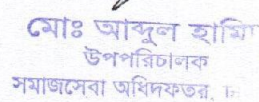 মোঃ আব্দুল হামি
উপপরিচালক
সমাজসেবা অধিদফতর,